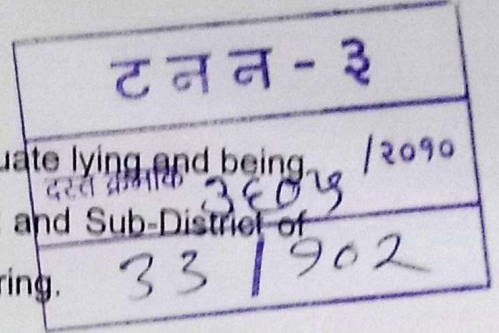 ट न न - ३
uate lying and being
दस्त क्रमांक ३६०५ /२०१०
and Sub-District of
ring.
३३ / १०२